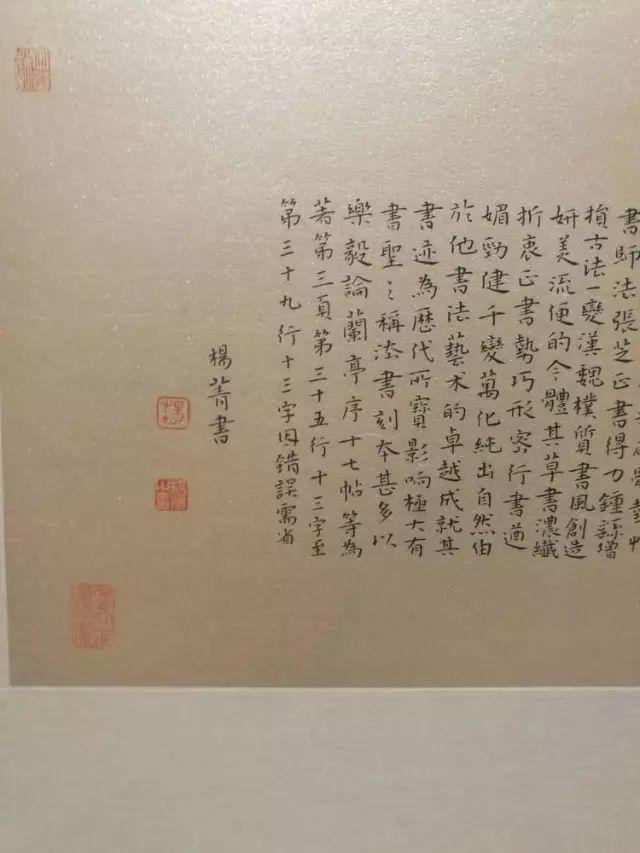 書師法張芝正書得力鍾繇增
損古法一變漢魏樸質書風創造
妍美流便的今體其草書濃纖
折衷正書勢巧形密行書遒
媚勁健千變萬化純出自然由
於他書法藝术的卓越成就其
書迹為歷代所寳影响極大有
書聖之稱法書刻夲甚多以
樂毅論蘭亭序十七帖等為
著第三頁第三十五行十三字至
第三十九行十三字因錯誤需省
楊菁書